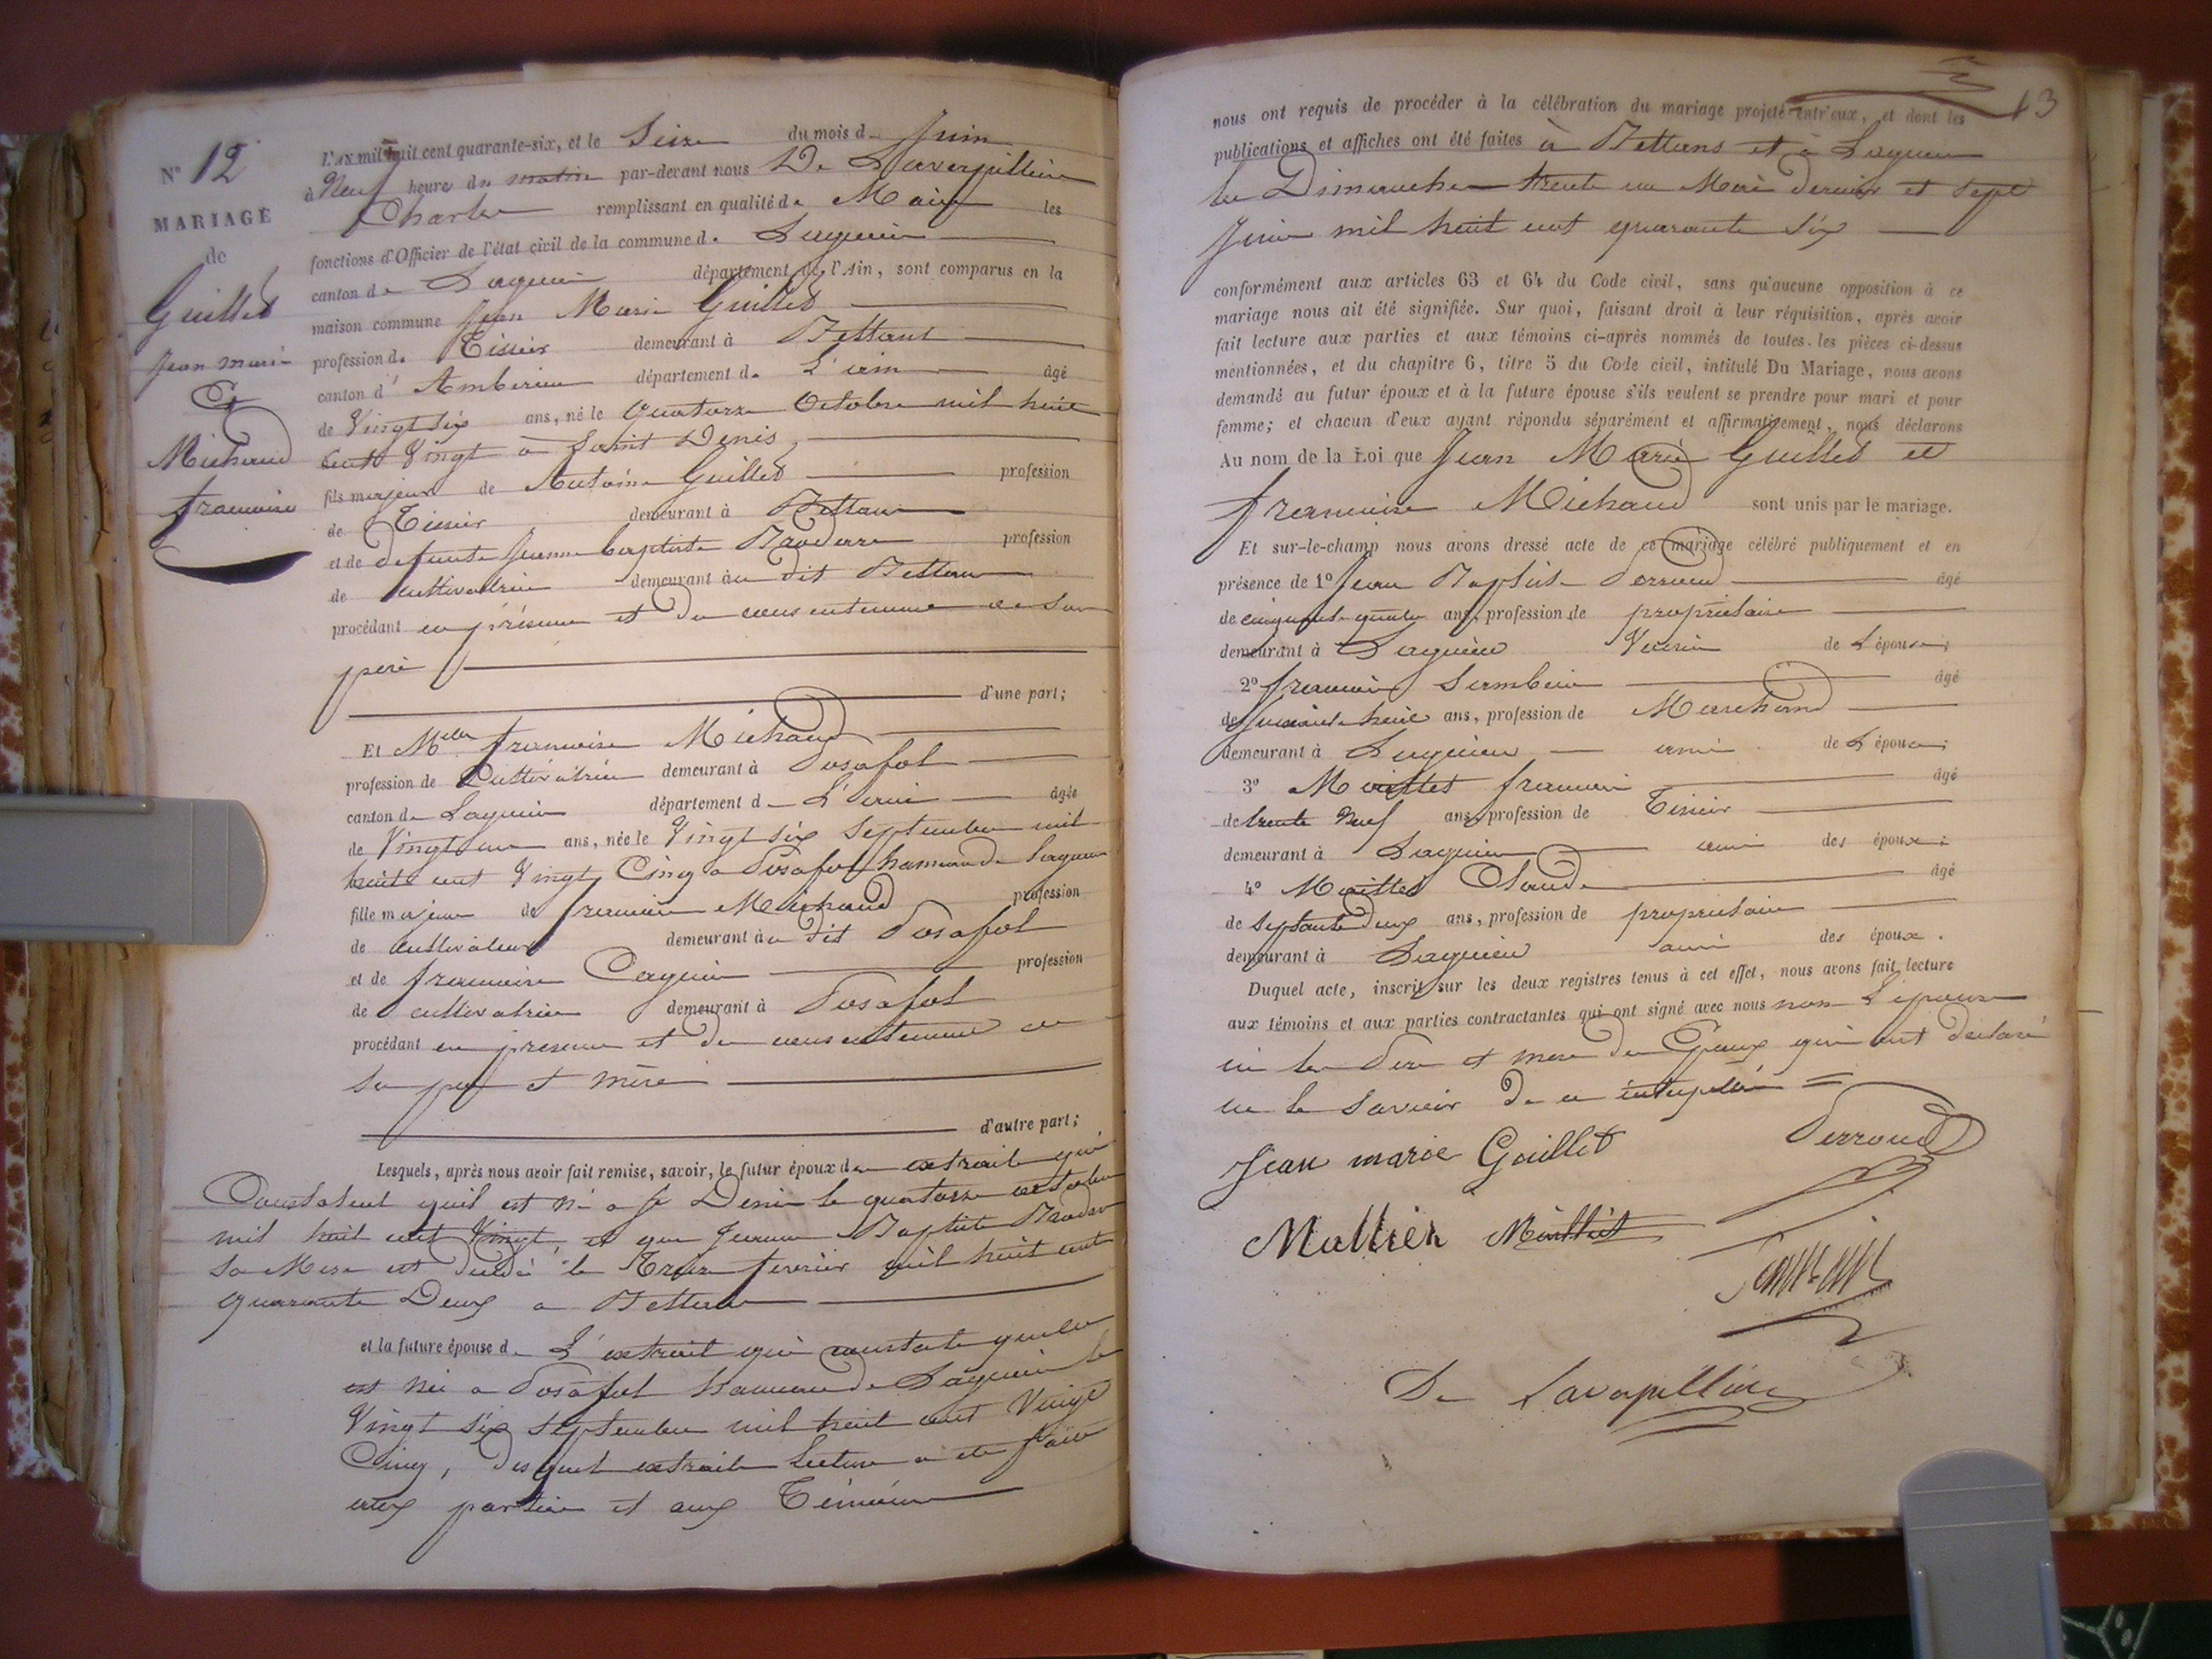 N° 12
MARIAGE
de
Guillet
Jean Marie
Et
Michaud
francoise
L'AN mil huit cent quarante-six, et le Seize du mois de Juin
à Neuf heures du matin par-devant nous De
Charles remplissant en qualité de Maire les
fonctions d'Officier de l'état civil de la commune de Lagnieu
canton de Lagnieu département de l'Ain, sont comparus en la
maison commune Jean Marie Guillet
profession de Tissier demeurant à Bettant
canton d' Amberieu département de L'ain âgé
de Vingt six ans, né le quatorze Octobre mil huit
Cent Vingt à Saint Denis,
fils majeur de Antoine Guillet profession
de Tissier demeurant à Bettant
et de defunte Jeanne Baptiste profession
de cultivatrice demeurant au dit Bettant
procédant en présence et du consentement de son
père
d'une part;
Et Melle francoise Michaud
profession de Cultivatrice demeurant à Posafol
canton de Lagnieu département de L'ain âgée
de Vingt un ans, née le Vingt six Septembre mil
huit cent Vingt Cinq a Posafol hameau de Lagnieu
fille majeure de francois Michaud profession
de cultivateur demeurant au dit Posafol
et de francoise profession
de cultivatrice demeurant à Posafol
procédant en presence et du consentement de
ses pere et mère
d'autre part;
Lesquels, après nous avoir fait remise, savoir, le futur époux des extraits qui
Constatent quil est né a St Denis le quatorze octobre
mil huit cent Vingt, et que Jeanne Baptiste
sa Mere est decédé le Treize fevrier mil huit cent
quarante Deux a Bettant
et la future épouse de L'extrait qui constate quelle
est née a Posafol hameau de Lagnieu le
Vingt six septembre mil huit cent Vingt
Cinq, desquels extraits lecture a été faite
aux parties et aux Témoins
13
nous ont requis de procéder à la célébration du mariage projeté entr'eux, et dont les
publications et affiches ont été faites à Bettans et à Lagnieu
les Dimanches trente un Mai dernier et sept
Juin mil huit cent quarante six
conformément aux articles 63 et 64 du Code civil, sans qu'aucune opposition à ce
mariage nous ait été signifiée. Sur quoi, faisant droit à leur réquisition, après avoir
fait lecture aux parties et aux témoins ci-après nommés de toutes les pièces ci-dessus
mentionnées, et du chapitre 6, titre 5 du Code civil, intitulé Du Mariage, nous avons
demandé au futur époux et à la future épouse s'ils veulent se prendre pour mari et pour
femme; et chacun d'eux ayant répondu séparément et affirmativement, nous déclarons
Au nom de la Loi que Jean Marie Guillet et
francoise Michaud sont unis par le mariage.
Et sur-le-champ nous avons dressé acte de ce mariage célébré publiquement et en
présence de 1° Jean Baptiste Perroud âgé
de cinquante quatre ans, profession de propriétaire
demeurant à Lagnieu Voisin de L'épouse;
2° francois âgé
de quarante huit ans, profession de Marchand
demeurant à Lagnieu ami de L'épouse;
3° francois âgé
de trente Neuf ans, profession de Tissier
demeurant à Lagnieu ami des époux;
4° Claude âgé
de septante deux ans, profession de proprietaire
demeurant à Lagnieu ami des époux.
Duquel acte, inscrit sur les deux registres tenus à cet effet, nous avons fait lecture
aux témoins et aux parties contractantes qui ont signé avec nous non L'epouse
ni les Pere et mere des Epoux qui ont declaré
ne le savoir de ce interpellés
Jean marie Guillet
Perroud